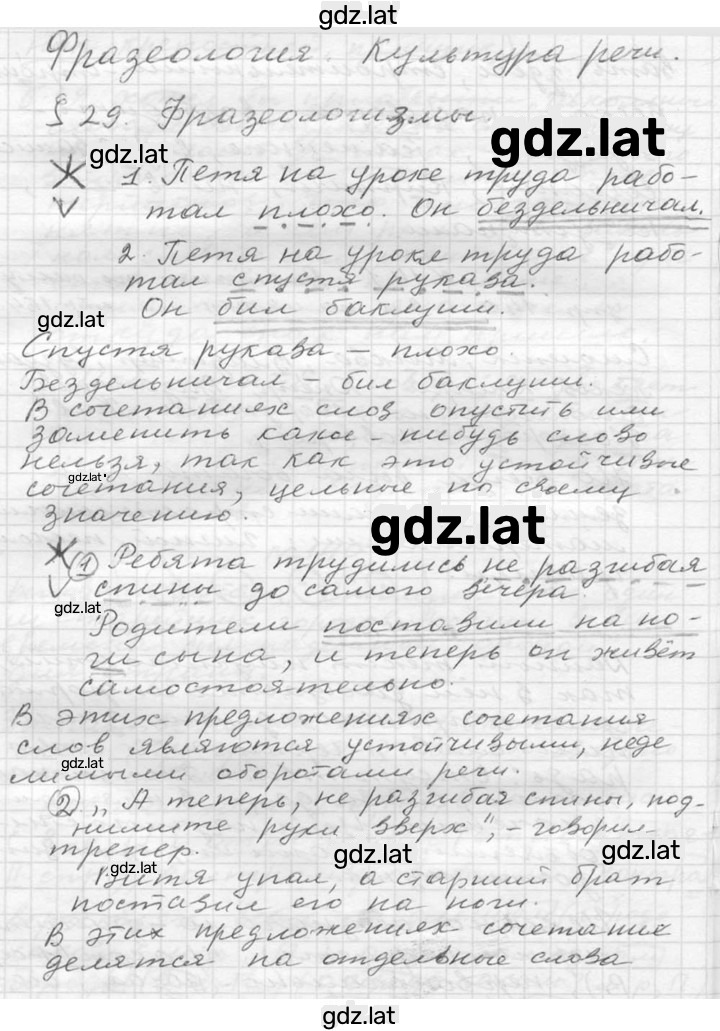 gdz.lat
Фразеология. Культура речи.
§ 29. Фразеологизмы.
gdz.lat
gdz.lat
1. Петя на уроке труда рабо-
тал плохо. Он бездельничал.
2. Петя на уроке труда рабо-
тал спустя рукава.
Он бил баклуши.
gdz.lat
Спустя рукава – плохо
Бездельничал – бил баклуши.
В сочетаниях слов опустить или
заменить какое-нибудь слово
нельзя, так как это устойчивые
gdz.lat
сочетания, цельные по своему
значению.
gdz.lat
1 Ребята трудились не разгибая
спины до самого вечера.
gdz.lat
Родители поставили на но-
ги сына, и теперь он живёт
самостоятельно.
В этих предложениях сочетания
слов являются устойчивыми, неде
лимыми оборотами речи.
gdz.lat
2 „А теперь, не разгибая спины, под-
нимите руки вверх", – говорил
тренер.
gdz.lat
gdz.lat
gdz.lat
Витя упал, а старший брат
поставил его на ноги.
В этих предложениях сочетания
делятся на отдельные слова
gdz.lat
gdz.lat